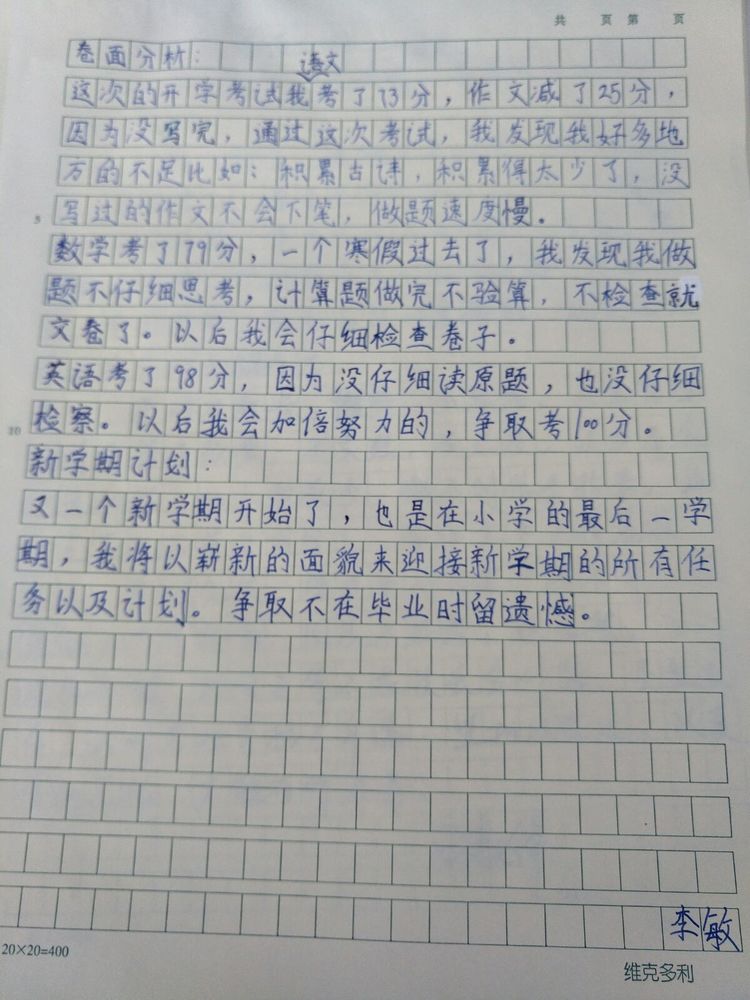 共 页 第 页
卷面分析：
语文
这次的开学考试我考了73分，作文减了25分，
因为没写完，通过这次考试，我发现我好多地
方的不足比如：积累古诗，积累得太少了，没
5
写过的作文不会下笔，做题速度慢。
数学考了79分，一个寒假过去了，我发现我做
题不仔细思考，计算题做完不验算，不检查就
交卷了。以后我会仔细检查卷子。
英语考了98分，因为没仔细读原题，也没仔细
10
检察。以后我会加倍努力的，争取考100分。
新学期计划：
又一个新学期开始了，也是在小学的最后一学
期，我将以崭新的面貌来迎接新学期的所有任
务以及计划。争取不在毕业时留遗憾。
李敏
20×20=400
维克多利